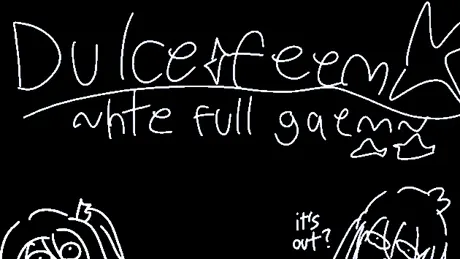 Dulce✦feem
~hte full gaem~
it's
out?